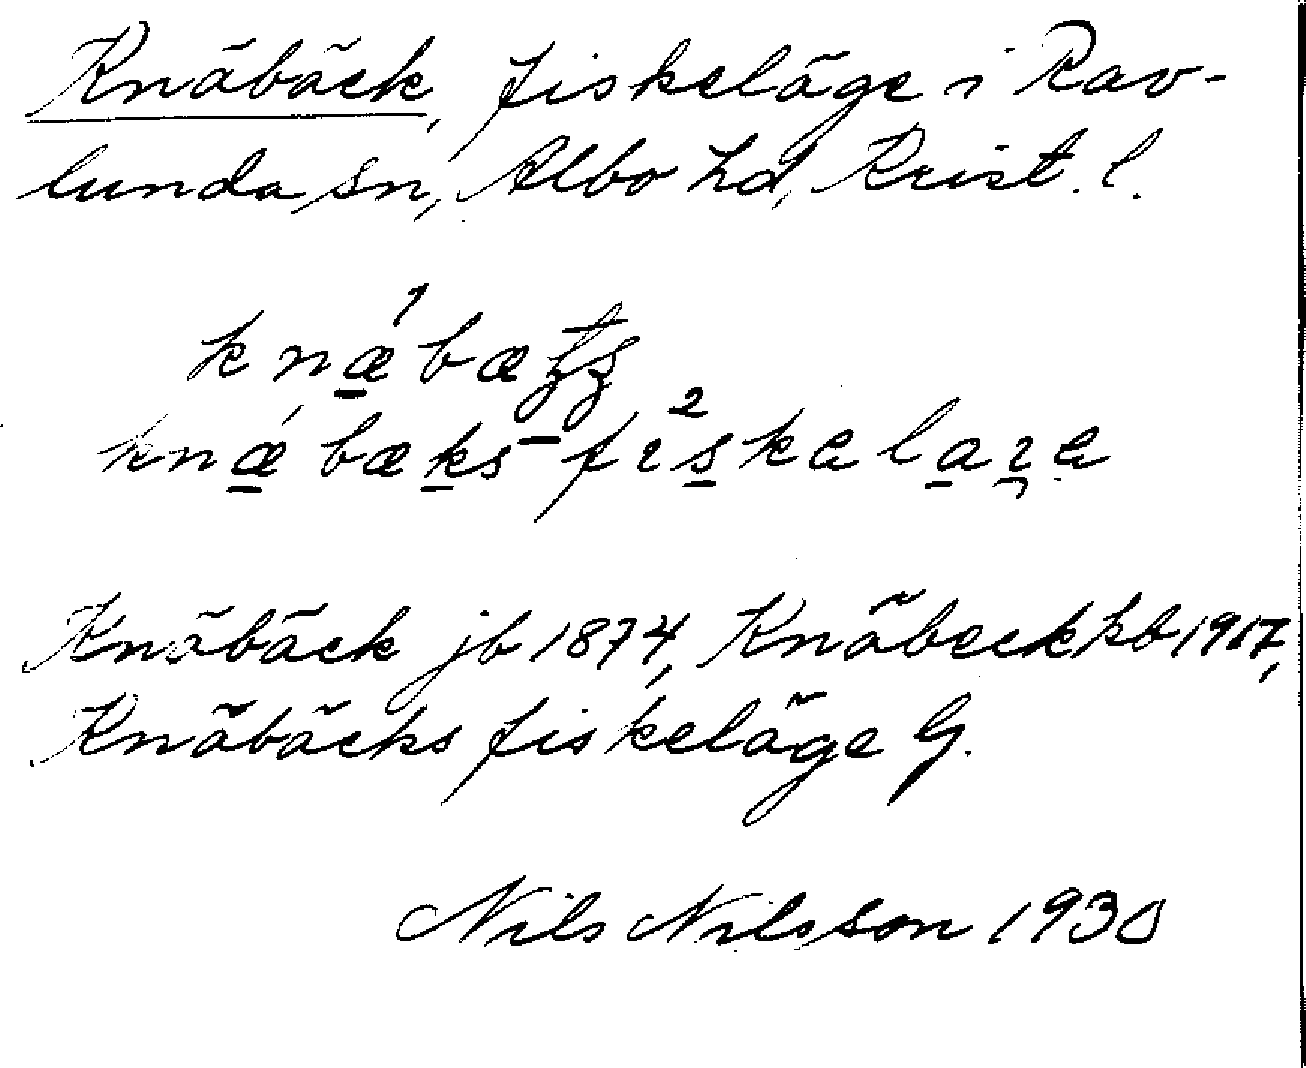 Knäbäck, fiskeläge i Rav-
lunda sn, Albo hd, Krist. l.
knǽ̱¹bæ
knǽ̱bæḵs fɪ²s̱kelaꞛe
Knäbäck jb 1874, Knäbeck kb 1917,
Knäbäcks fiskeläge G.
Nils Nilsson 1930